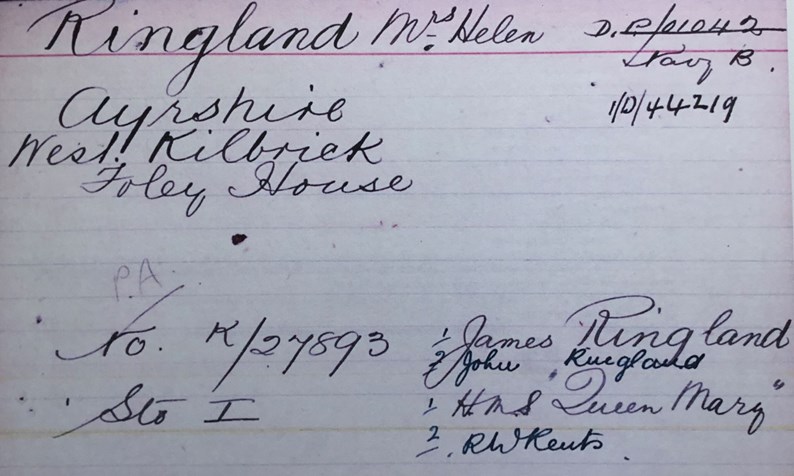 Ringland Mrs Helen D.P/21042
Navy B.
1/D/44219
Ayrshire
West. Kilbrick
Foley House
P.A.
No. K/27893 1, James Ringland
2, John Ringland
Sto I 1, H.M.S "Queen Mary"
2, R W Kents.